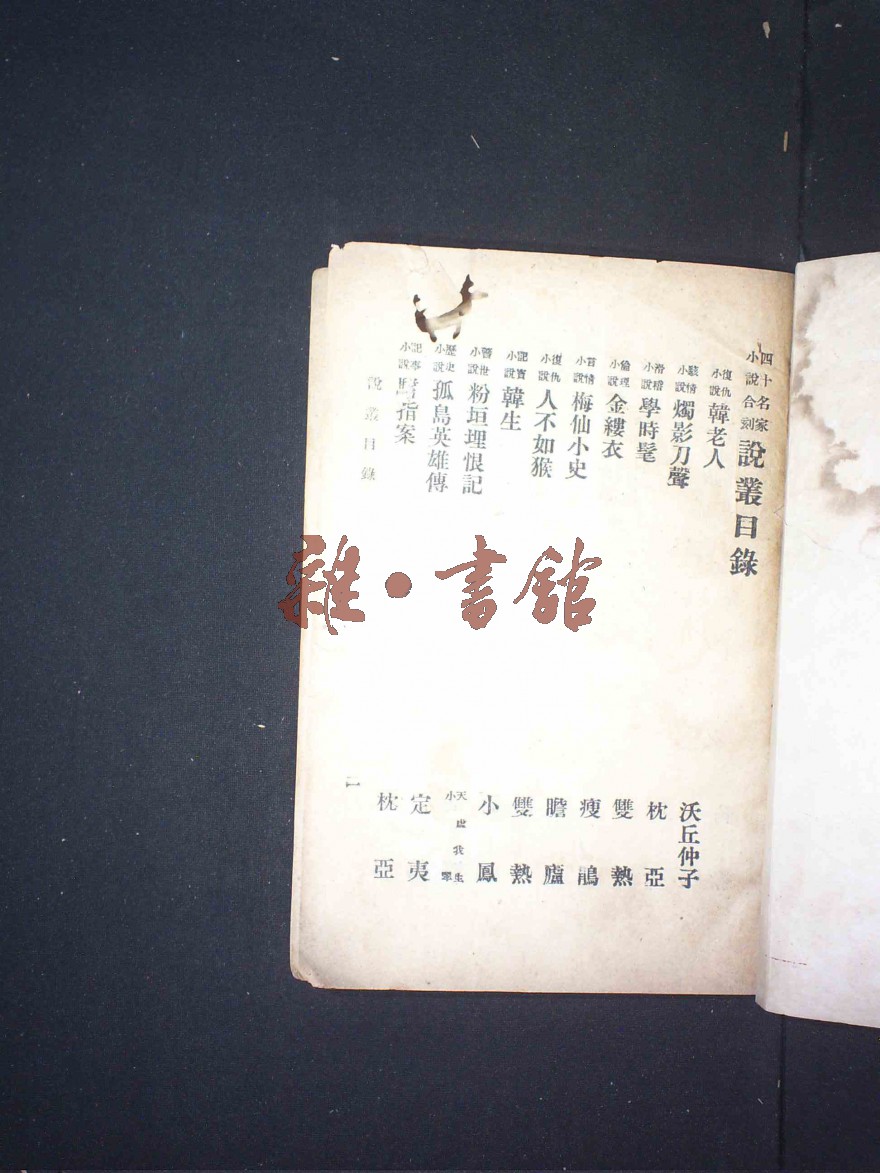 四十名家小說合刻 說叢目錄
復仇小說 韓老人 沃丘仲子
駭情小說 燭影刀聲 枕亞
滑稽小說 學時髦 雙熱
倫理小說 金縷衣 瘦鵑
苦情小說 梅仙小史 瞻廬
復仇小說 人不如猴 雙熱
記實小說 韓生 小鳳
警世小說 粉垣埋恨記 天虛我生 小翠
歷史小說 孤島英雄傳 定夷
記事小說 指案 枕亞
說叢目錄 一
雜·書館